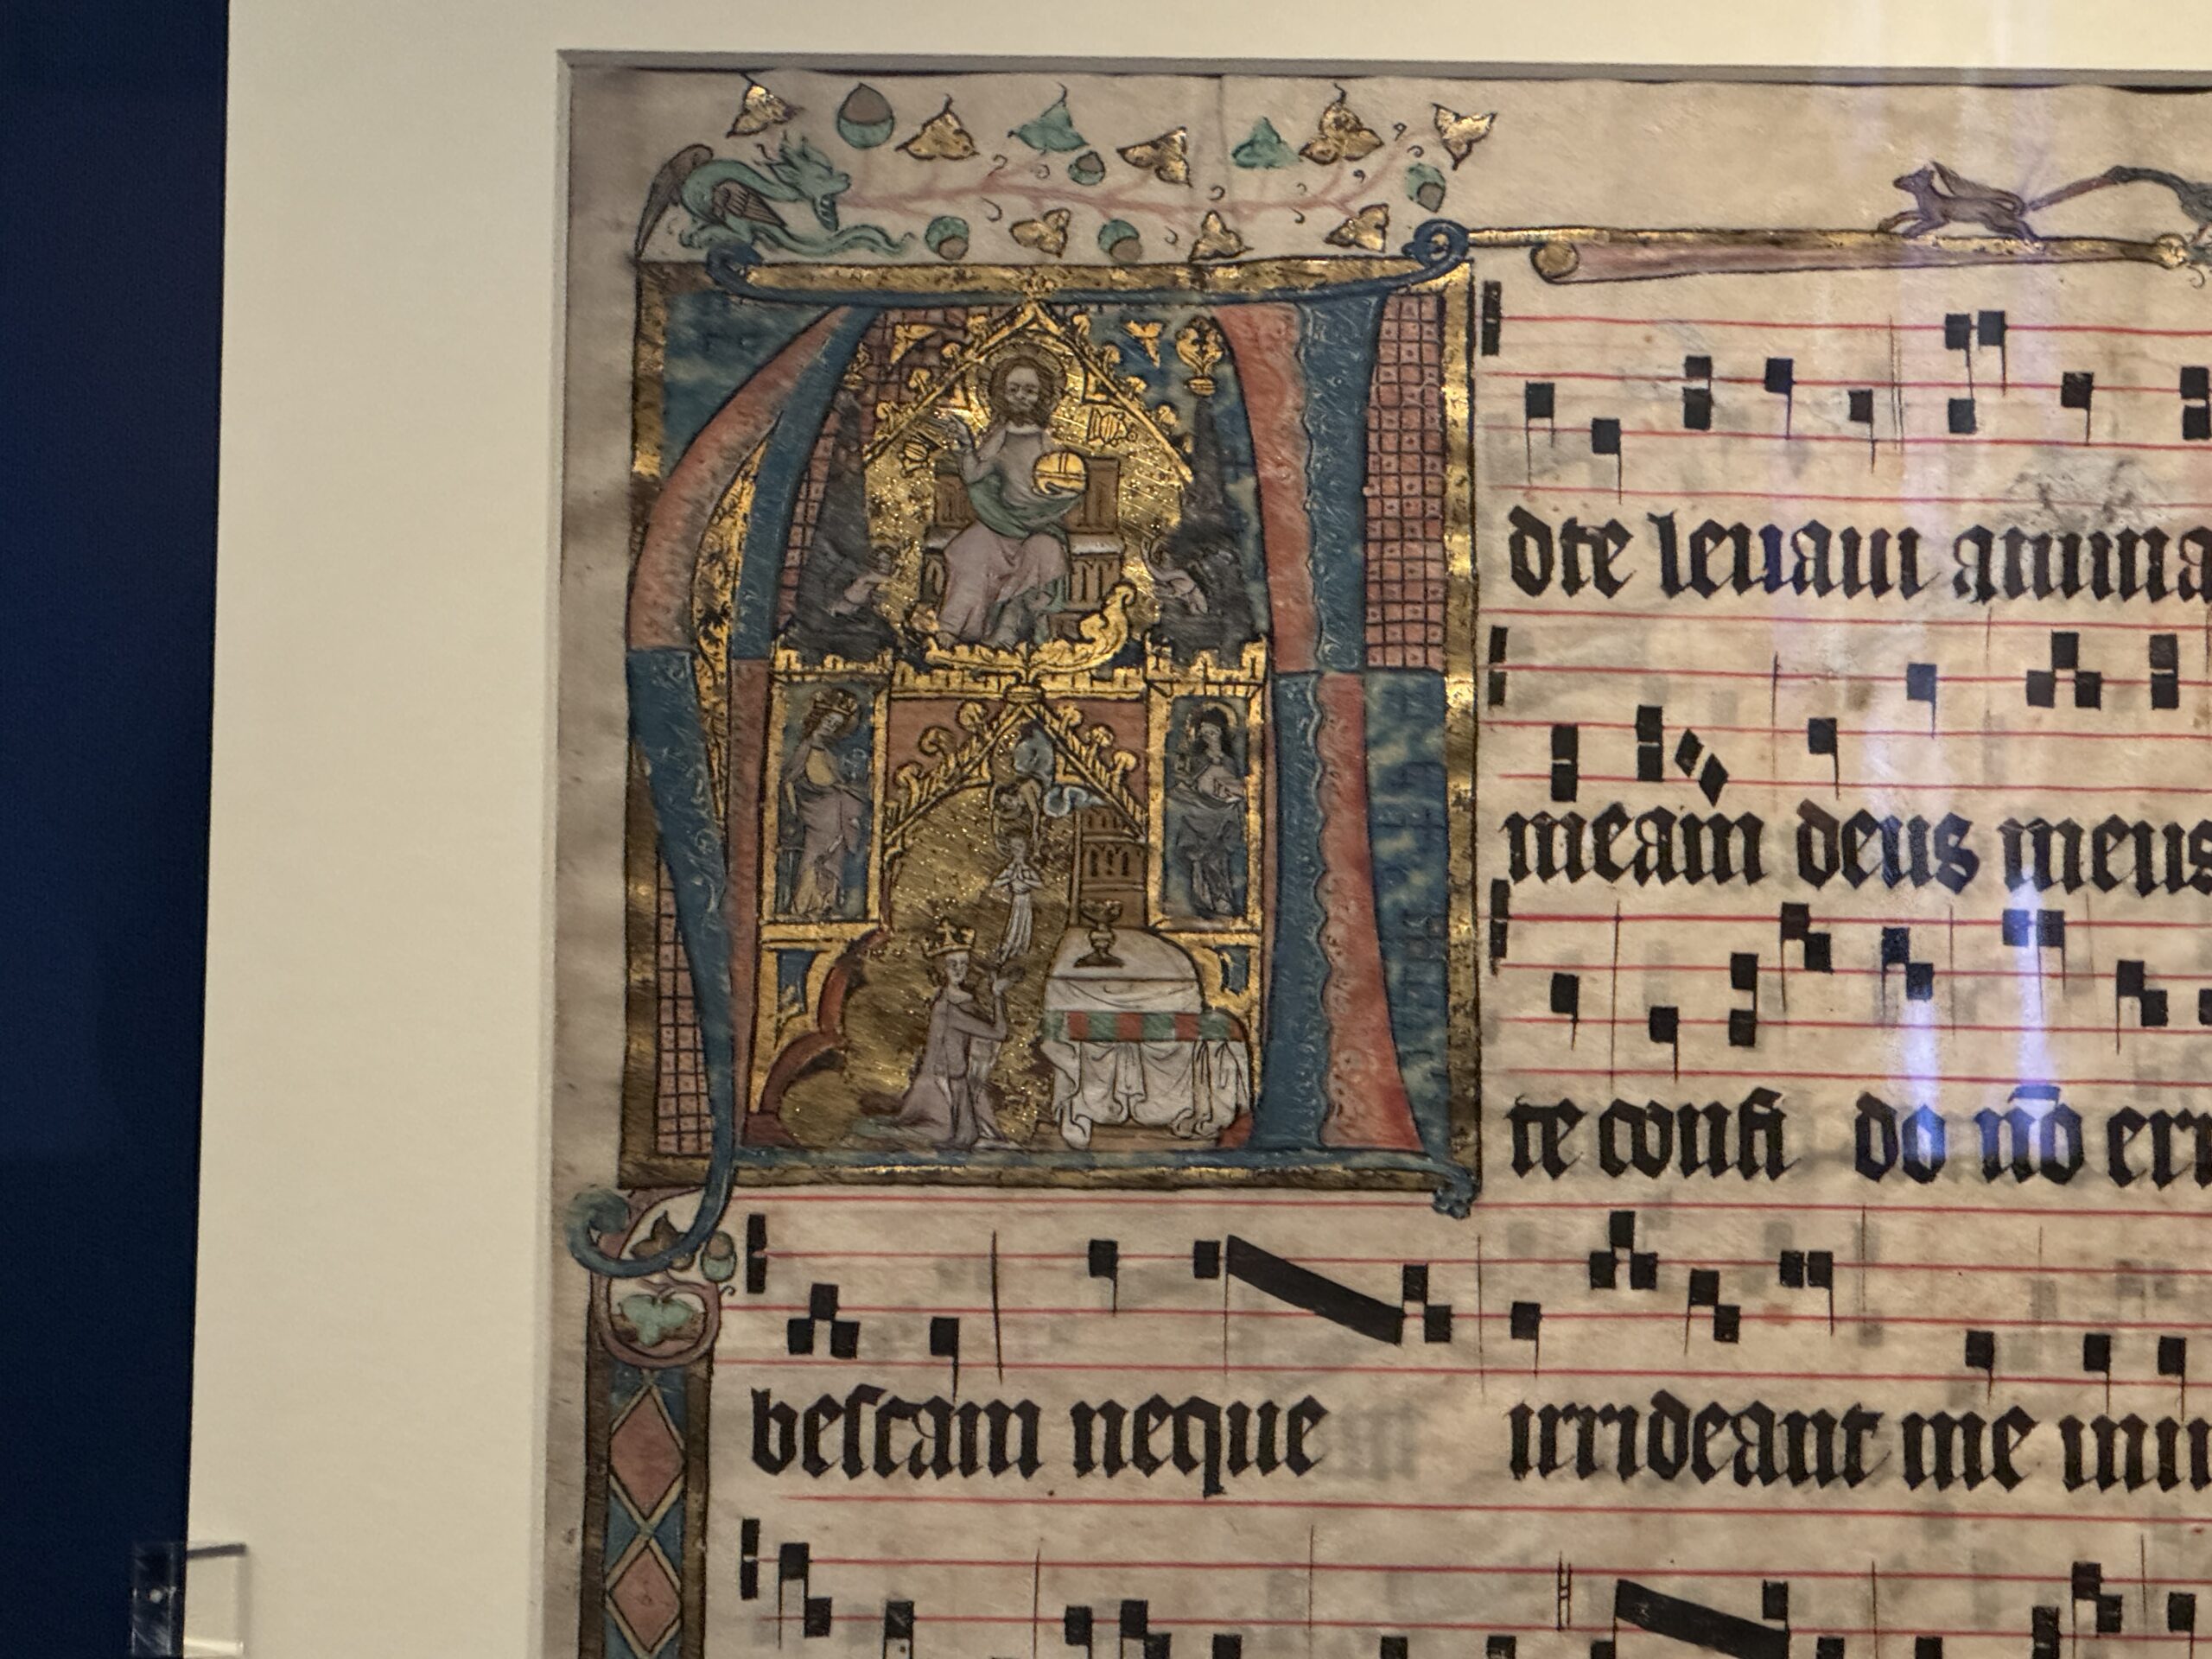 A
dte leuaui anima
meam deus meus
te confi do no̅ er
bescam neque irrideant me ini